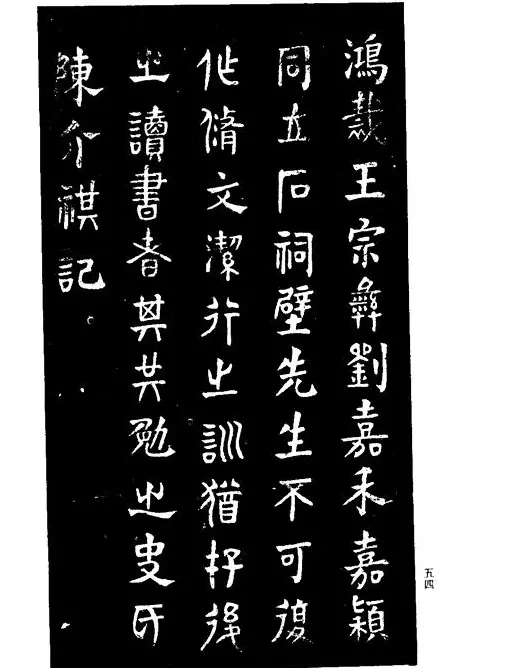 鴻裁王宗彝劉嘉禾嘉穎
同立石祠壁先生不可復
作脩文潔行之訓猶存後
之讀書者其共勉之史氏
陳介祺記
五四